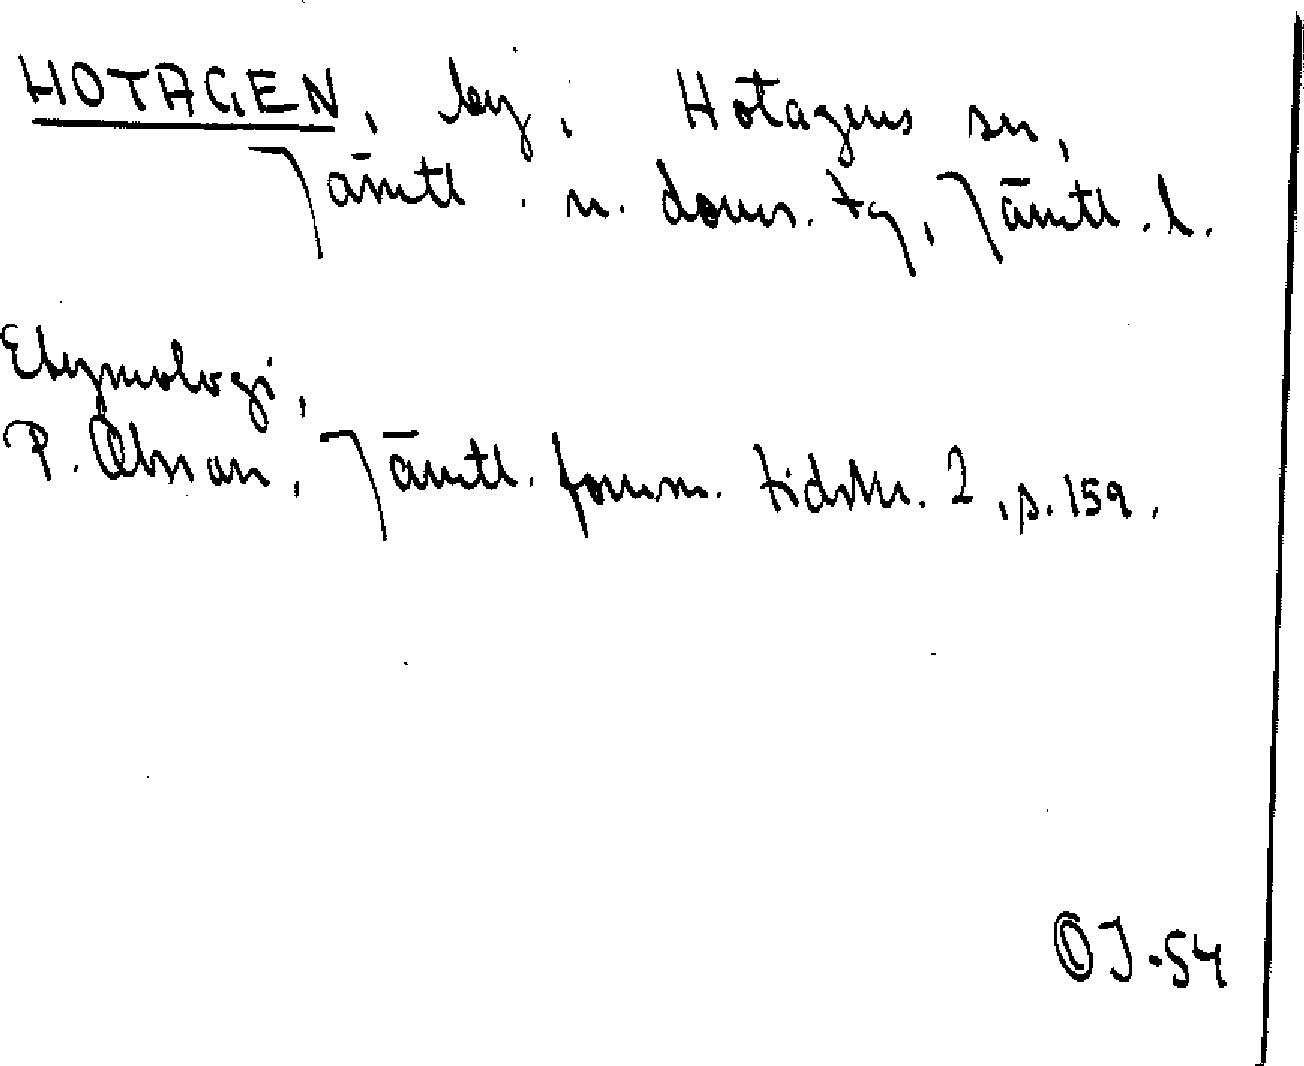 HOTAGEN, by, Hotagens sn,
Jämtl. n. doms. tg, Jämtl. l.
Etymologi,
P. Olsson, Jämtl. fornm. tidskr. 2, s. 159.
OJ-54